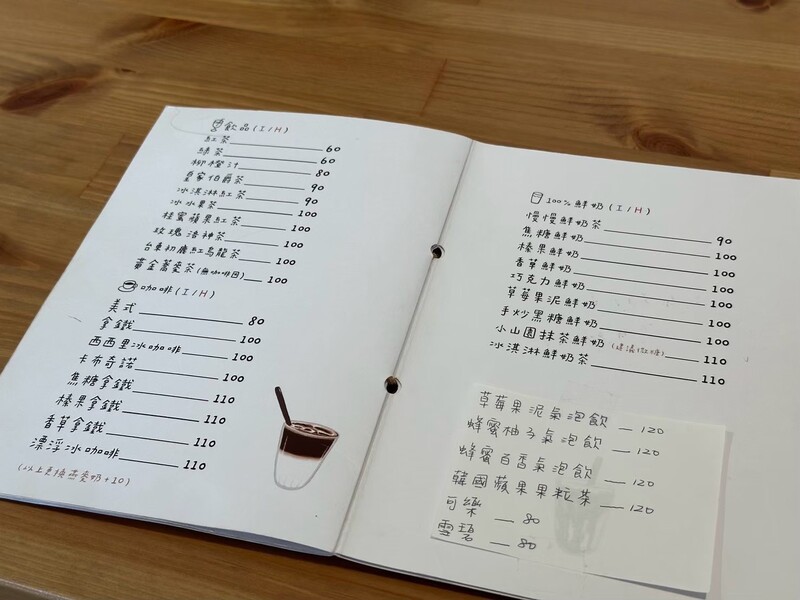 飲品(I/H)
紅茶 60
綠茶 60
柳橙汁 80
皇家伯爵茶 90
冰淇淋紅茶 90
冰水果茶 100
桂蜜蘋果紅茶 100
玫瑰洛神茶 100
台東初鹿紅烏龍茶 100
黃金蕎麥茶(無咖啡因) 100
咖啡(I/H)
美式 80
拿鐵 100
西西里冰咖啡 100
卡布奇諾 100
焦糖拿鐵 110
榛果拿鐵 110
香草拿鐵 110
漂浮冰咖啡 110
(以上更換燕麥奶+10)
100%鮮奶(I/H)
慢慢鮮奶茶 90
焦糖鮮奶 100
榛果鮮奶 100
香草鮮奶 100
巧克力鮮奶 100
草莓果泥鮮奶 100
手炒黑糖鮮奶 100
小山園抹茶鮮奶(建議微糖) 110
冰淇淋鮮奶茶 110
草莓果泥氣泡飲 — 120
蜂蜜柚子氣泡飲 — 120
蜂蜜百香氣泡飲 — 120
韓國蘋果果粒茶 — 120
可樂 — 80
雪碧 — 80